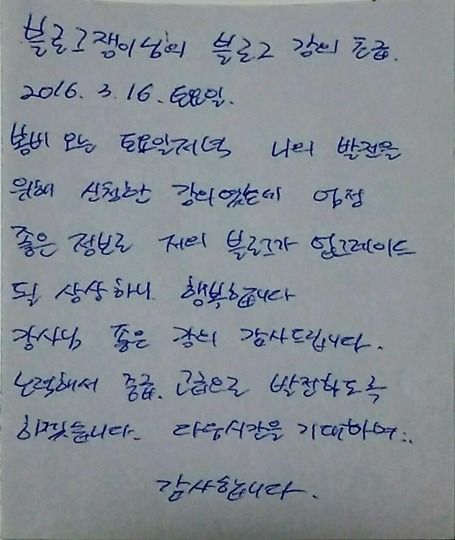 블로그쟁이님의 블로그 강의 초급.
2016. 3. 16. 토요일.
봄비 오는 토요일저녁 나의 발전을
위해 신청한 강의였는데 엄청
좋은 정보로 저의 블로그가 업그레이드
될 상상하니 행복합니다
강사님 좋은 강의 감사드립니다.
노력해서 중급. 고급으로 발전하도록
하겠습니다. 다음시간을 기대하며..
감사합니다.